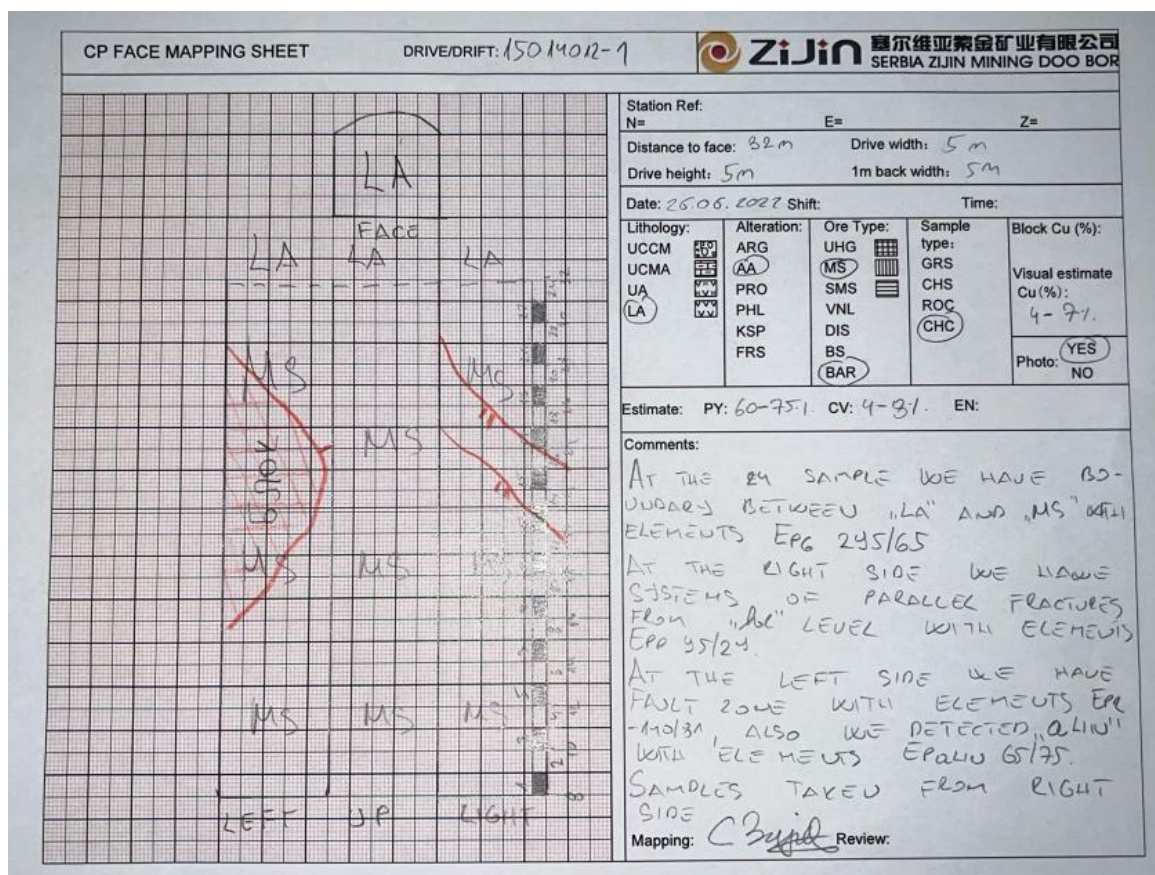 CP FACE MAPPING SHEET
DRIVE/DRIFT: 15014012-1
ZiJin 塞尔维亚紫金矿业有限公司
SERBIA ZIJIN MINING DOO BOR
LA
FACE
LA LA LA
MS MS
MS
MS MS MS
MS MS MS
LEFT UP RIGHT
Station Ref:
N= E= Z=
Distance to face: 32m Drive width: 5m
Drive height: 5m 1m back width: 5m
Date: 26.06.2022 Shift: Time:
Lithology:
UCCM
UCMA
UA
LA
Alteration:
ARG
AA
PRO
PHL
KSP
FRS
Ore Type:
UHG
MS
SMS
VNL
DIS
BS
BAR
Sample
type:
GRS
CHS
ROC
CHC
Block Cu (%):
Visual estimate
Cu(%):
Photo: YES
NO
Estimate: PY: 60-75% CV: EN:
Comments:
AT THE 24 SAMPLE WE HAVE BO-
UNDARY BETWEEN „LA" AND „MS" WITH
ELEMENTS 245/65
AT THE RIGHT SIDE WE HAWE
SYSTEMS OF PARALLEL FRACTURES
FROM LEVEL WITH ELEMENTS
AT THE LEFT SIDE WE HAVE
FAULT ZONE WITH ELEMENTS
ALSO WE DETECTED
WITH ELEMENTS 65/75.
SAMPLES TAKEN FROM RIGHT
SIDE
Mapping: Review: